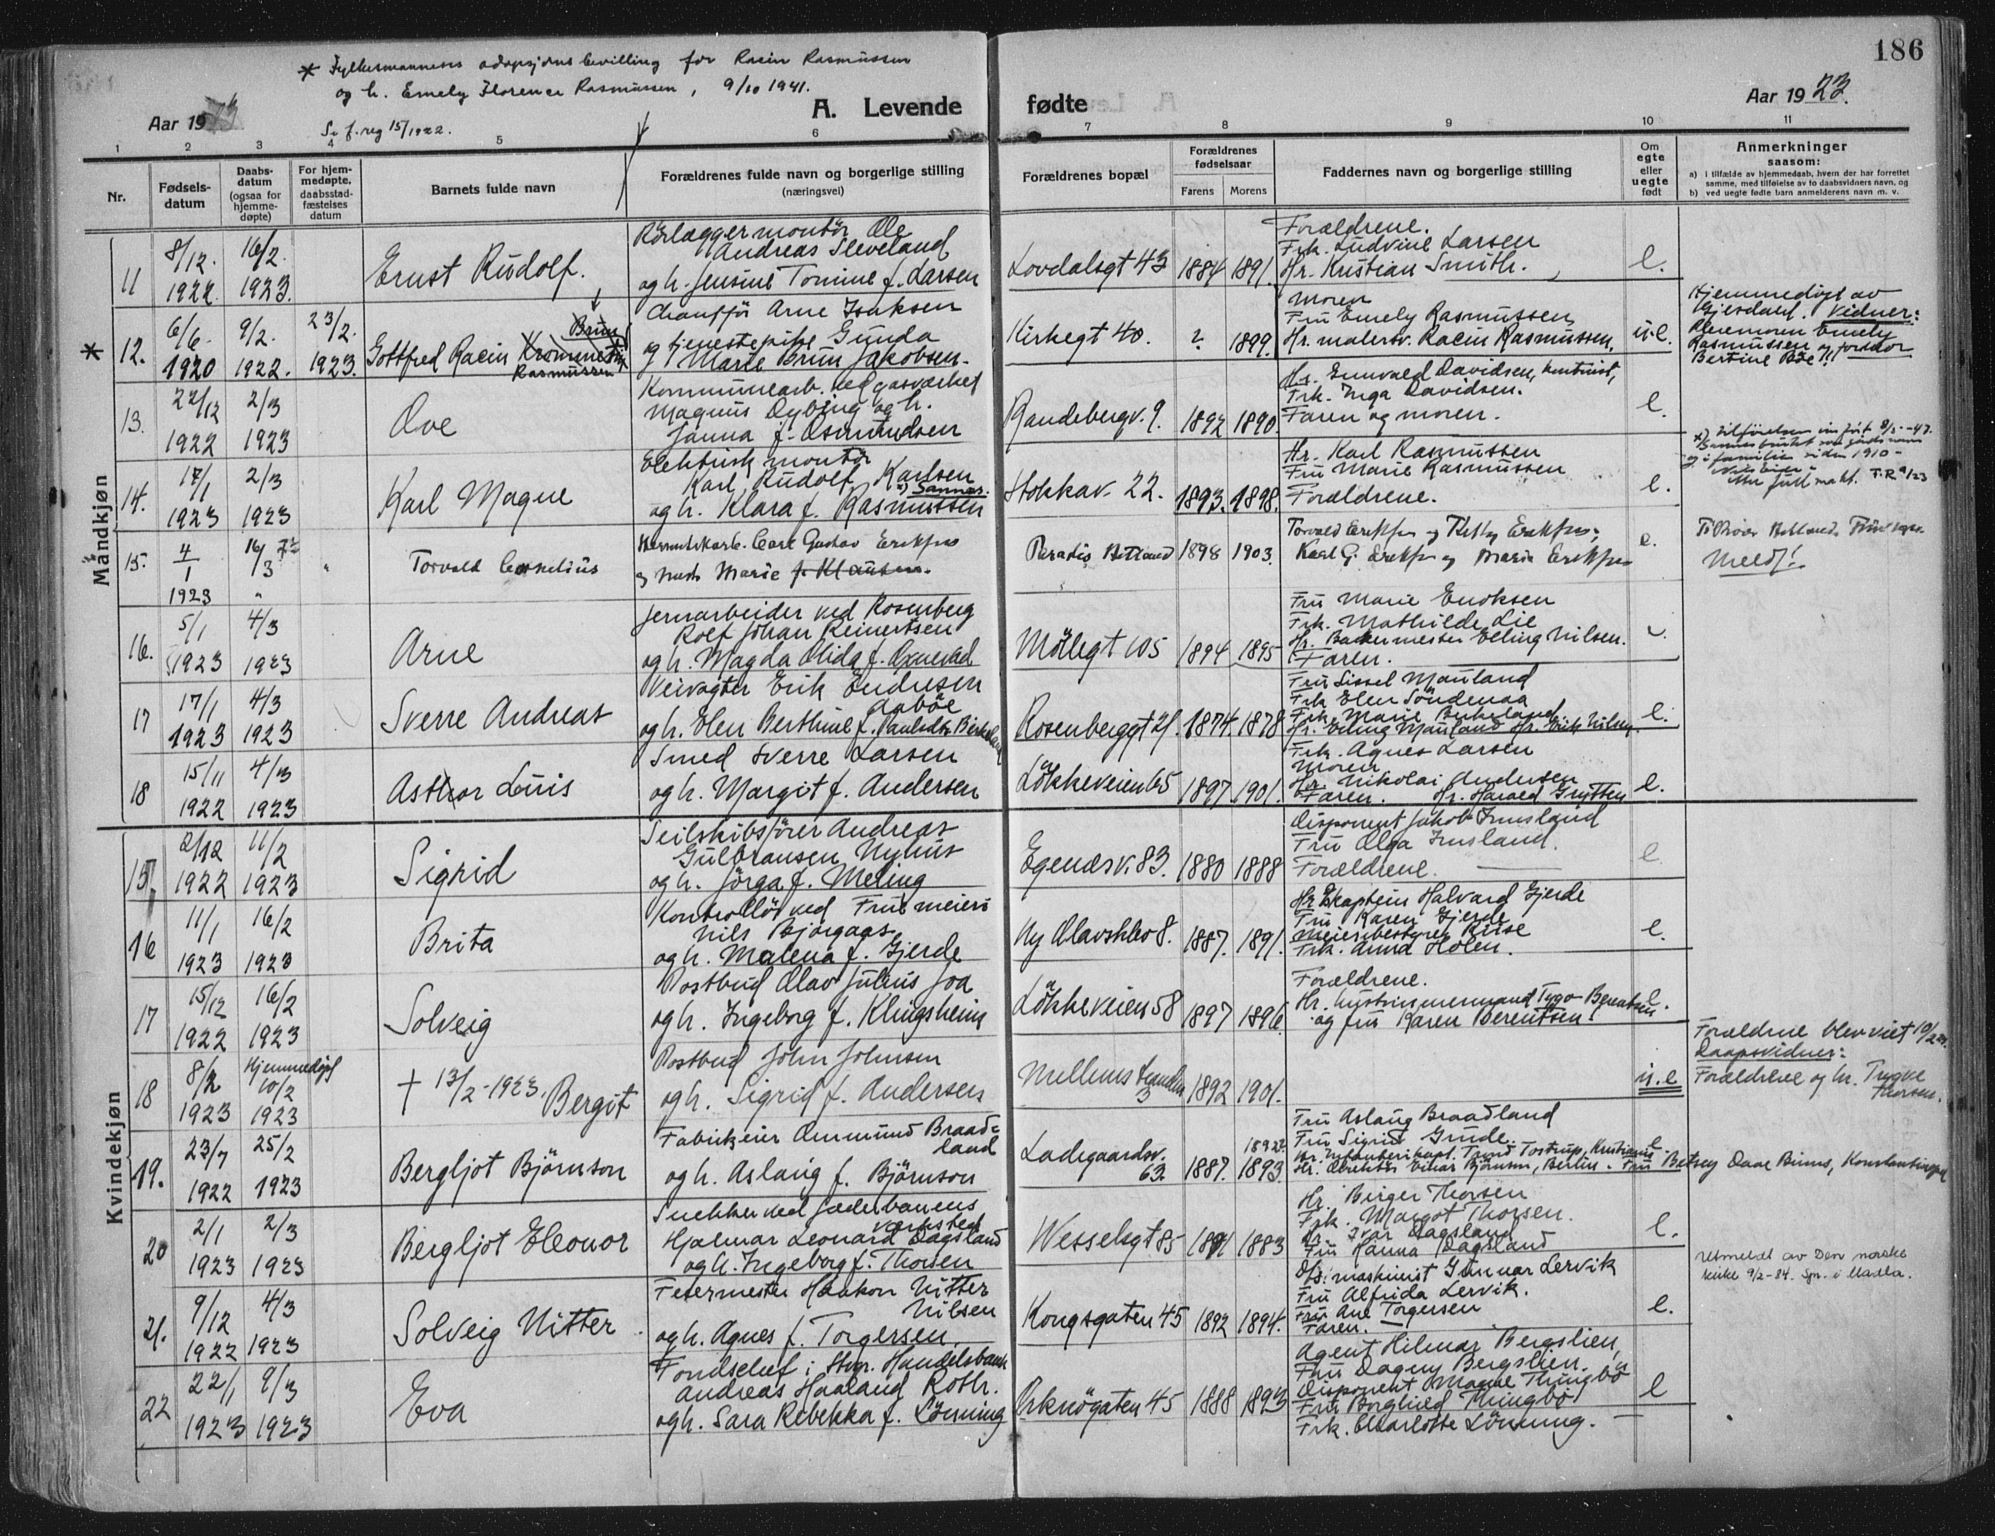 * Fylkesmannens adopsjons bevilling for Racin Rasmussen
og h. Emely Florence Rasmussen, 9/10 1941.
186
A. Levende fødte
Aar 19
Aar 1923.
Se f. reg 15/1922.
1 2 3 4 5 6 7 8 9 10 11
Nr.
Fødsels-
datum
Daabs-
datum
(ogsaa for
hjemme-
døpte)
For hjem-
medøpte,
daabsstad-
fæstelses
datum
Barnets fulde navn
Forældrenes fulde navn og borgerlige stilling
(næringsvei)
Forældrenes bopæl
Forældrenes
fødselsaar
Farens Morens
Faddernes navn og borgerlige stilling
Om
egte
eller
uegte
født
Anmerkninger
saasom:
a) i tilfælde av hjemmedaab, hvem der har forrettet
samme, med tilføielse av to daabsvidners navn, og
b) ved uegte fødte barn anmelderens navn m. v.
Mandkjøn
11
8/12. 1922.
16/2. 1923.
Ernst Rudolf.
Rørlæggermontør Ole
Andreas Sleveland
og h. Jensine Tomine f. Larsen
Lovdalsgt 43
1884 1891.
Forældrene.
Frk. Ludvine Larsen
Hr. Kristian Smith.
e.
*
12.
6/6. 1920
9/2. 1922.
23/2. 1923.
Brun
Gottfred Racin
Rasmussen
Chauffør Arne Isaksen
og tjenestepike Gunda
Marie Brun Jakobsen.
Kirkegt 40.
? 1899.
Moren
Fru Emely Rasmussen
Hr. malersv. Racin Rasmussen.
u.e.
Hjemmedøpt av
Gjesdahl. Vidner:
Pleiemoren Emely
Rasmussen og jordmor
Bertine Bøe
13.
22/12 1922
2/3 1923
Ove
Kommunearb. ved gasværket
Magnus Dybing og h.
Janna f. Osmundsen
Randebergv. 9.
1892 1890.
Hr. Enevald Davidsen,
Frk. Inga Davidsen.
Faren og moren.
e.
14.
17/1 1923
2/3 1923
Karl Magne
Elektrisk montør
Karl Rudolf Karlsen
x) Sannes.
og h. Klara f. Rasmussen
Stokkav. 22.
1893. 1898.
Hr. Karl Rasmussen
Fru Marie Rasmussen
Forældrene.
e.
15.
4/1 1923
16/3 "
"
Torvald Cornelius
Carl Gustav Eriksen
og Marie f. Klausen.
Paradis Hetland
1898 1903.
Torvald Eriksen og Eriksen;
Karl G. Eriksen og Maria Eriksen
e.
Meldt!
16.
5/1 1923
4/3 1923
Arne
Jernarbeider ved Rosenberg
Rolf Johan Reinertsen
og h. Magda Olida f.
Møllegt 105
1894 1895
Fru Marie Enoksen
Frk. Mathilde Lie
Hr. Bakermester Elling Nilsen.
Faren.
17
17/1 1923
4/3 1923
Sverre Andreas
Veivogter Erik Endresen
Aabøe
og h. Elen Berthine f. Paulsdtr. Birkeland
Rosenberggt 21.
1874. 1878
Fru Sissel Mauland
Frk Elen Søndenaa
Frk. Marie Birkeland
Hr. Elling Mauland Hr. Erik Nilsen.
e.
18
15/11 1922
4/3 1923
Asthor Luis
Smed Sverre Larsen
og h. Margit f. Andersen
Løkkeveien 65
1897 1901.
Frk. Agnes Larsen
Moren
Hr. Nikolai Andersen
Faren. Hr. Harald Grytten
e.
Kvindekjøn
15
2/12 1922
11/2 1923
Sigrid
Seilskibsfører Andreas
Gulbransen Nyhus
og h. Jørga f. Meling
Egenæsv. 83.
1880 1888
Disponent Jakob Imsland
Fru Olga Imsland.
Forældrene.
e
16
11/1 1923
16/2 1923
Brita
Kontrollør ved Frue meieri
Nils Bjørgaas
og h. Malena f. Gjerde
Ny Olavskleo 8.
1887. 1891.
Hr Skaptein Halvard Gjerde
Fru Karen Gjerde
Meieribestyrer Riise
Frk. Anna Holen.
e.
17
15/12 1922
16/2 1923
Solveig
Postbud Olav Julius Joa
og h. Ingeborg f. Klingsheim
Løkkeveien 58
1897 1896.
Forældrene.
Hr. hustømmermand Tygo Berentsen
og fru Karen Berentsen.
e.
18
8/2 1923
Hjemmedøpt
10/2 1923
† 13/2-1923. Bergit
Postbud John Johnsen
og h. Sigrid f. Andersen
Mellemstranden
3
1892 1901.
u.e
Forældrene blev viet 10/2
Daapsvidner:
Forældrene og hr. Trygve
Thorsen.
19.
23/7 1922
25/2 1923
Bergljot Bjørnson
Fabrikeier Ommund Braad=
land
og h. Aslaug f. Bjørnson
Ladegaardsv.
63.
1887. 1893.
Fru Aslaug Braadland
Fru Sigrid Grude.
Hr. Infanterikapt. Trond Tostrup, Kristiania
Hr. Direktør Einar Bjørnson, Berlin. Fru Betsey Daae Binns, Konstantinopel
e
20
2/1 1923
2/3 1923
Bergljot Eleonor
Snekker ved Jæderbanens
værksted
Hjalmar Leonard Dagsland
og h. Ingeborg f. Thorsen
Wesselsgt 85
1891 1883
Hr. Birger Thorsen
Frk. Margot Thorsen.
Hr. Ivar Dagsland
Fru Hanna Dagsland
e.
Utmeldt av Den norske
kirke 9/2-84. Spr. i Madla.
21.
9/12 1922
4/3 1923
Solveig Nitter
Feiermester Haakon Nitter
Nilsen
og h. Agnes f. Torgersen.
Kongsgaten 45
1892 1894.
maskinist Gunnar Lervik
Fru Alfrida Lervik.
Fru Ane Torgersen
Faren.
e.
22
22/1 1923
9/3 1923
Eva
Fondschef i Stvgr. Handelsbank
Andreas Haaland Roth.
og h. Sara Rebekka f. Lönning
Orknøgaten 45
1888 1893
Agent Hilmar Bergslien,
Fru Dagny Bergslien.
Disponent Magne Thingbø
Fru Borghild Thingbø
Frk. Charlotte Lönning.
e